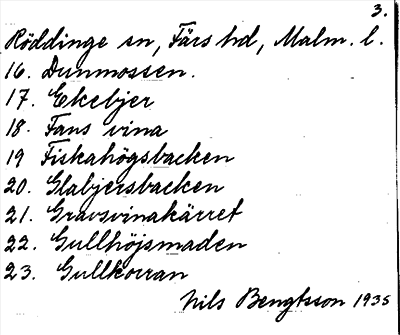 3.
Röddinge sn, Färs hd, Malm. l.
16. Dunmossen.
17. Ekebjer
18. Fans vina
19 Fiskahögsbacken
20. Glabjersbacken
21. Gravsvinakärret
22. Gullhöjsmaden
23. Gullkorran
Nils Bengtsson 1935